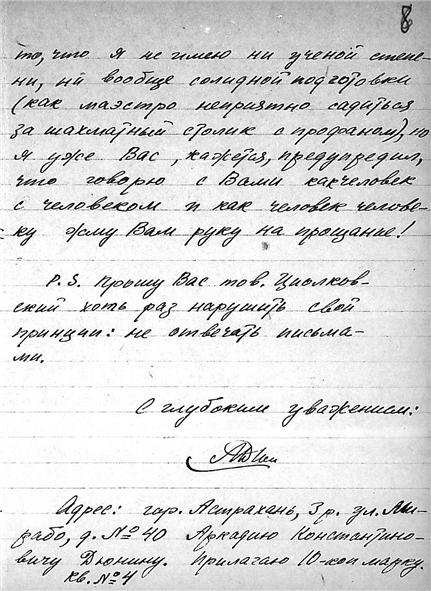 8
то, что я не имею ни ученой степе-
ни, ни вообще солидной подготовки
(как маэстро неприятно садиться
за шахматный столик с профаном), но
я уже Вас, кажется, предупредил,
что говорю с Вами как человек
с человеком и как человек челове-
ку жму Вам руку на прощание!
P.S. Прошу Вас тов. Циолков-
ский хоть раз нарушить свой
принцип: не отвечать письма-
ми.
С глубоким уважением:
Адрес: гор. Астрахань, 3 р. ул. Ми-
рабо, д. № 40 Аркадию Константино-
вичу Дюнину. Прилагаю 10-коп марку.
кв. № 4